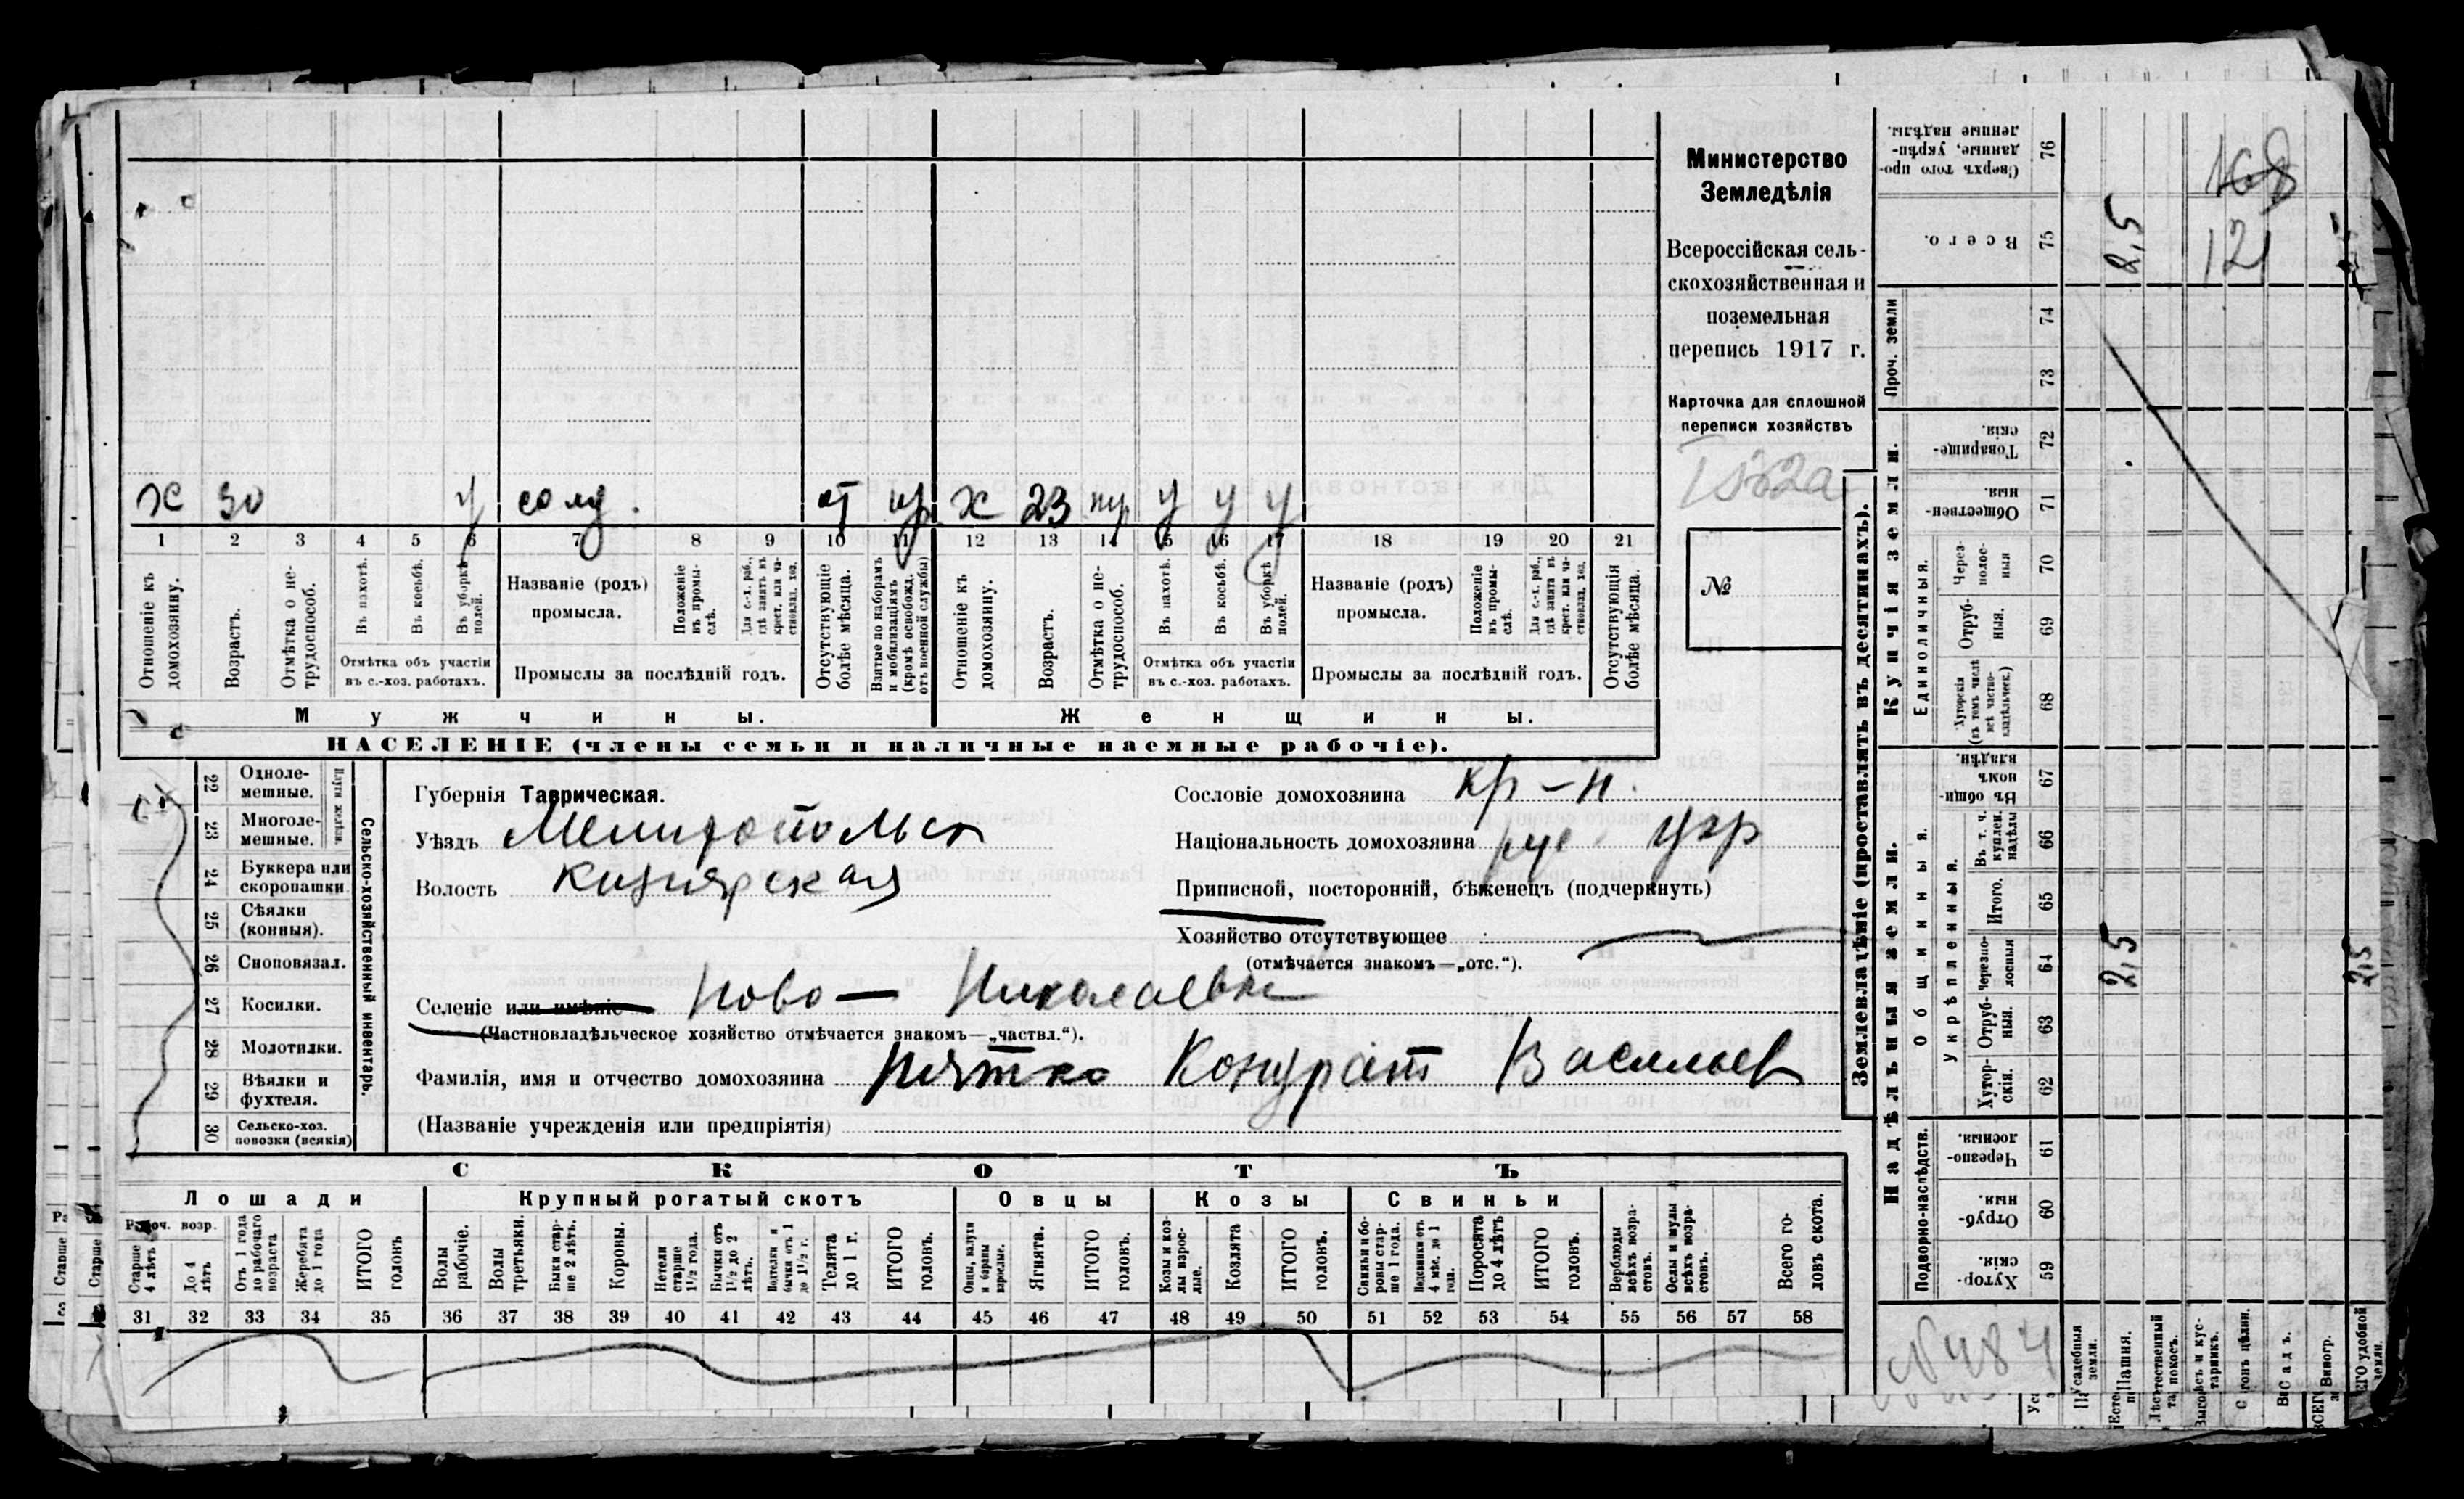 Министерство
Земледѣлія
Всероссійская сель-
скохозяйственная и
поземельная
перепись 1917 г.
Карточка для сплошной
переписи хозяйствъ
№
х 30 у солд. от х 23 у у у
1 2 3 4 5 6 7 8 9 10 11 12 13 14 15 16 17 18 19 20 21
Отношеніе къ домохозяину.
Возрастъ.
Отмѣтка о не-трудоспособ.
Въ пахотѣ.
Въ косьбѣ.
Въ уборкѣ полей.
Отмѣтка объ участіи
въ с.-хоз. работахъ.
Названіе (родъ)
промысла.
Положеніе въ промы-слѣ.
Для с.-х. раб., гдѣ занятъ въ крест. или ча-стновлад. хоз.
Промыслы за послѣдній годъ.
Отсутствующіе болѣе мѣсяца.
Взятые по наборамъ и мобилизаціямъ (кромѣ освобожд. отъ военной службы)
Отношеніе къ домохозяину.
Возрастъ.
Отмѣтка о не-трудоспособ.
Въ пахотѣ.
Въ косьбѣ.
Въ уборкѣ полей.
Отмѣтка объ участіи
въ с.-хоз. работахъ.
Названіе (родъ)
промысла.
Положеніе въ промы-слѣ.
Для с.-х. раб., гдѣ занята въ крест. или ча-стновлад. хоз.
Промыслы за послѣдній годъ.
Отсутствующія болѣе мѣсяца.
Мужчины.
Женщины.
НАСЕЛЕНІЕ (члены семьи и наличные наемные рабочіе).
22 Одноле-мешные.
23 Многоле-мешные.
Плуги желѣзн.
24 Буккера или скоропашки.
25 Сѣялки (конныя).
26 Сноповязал.
27 Косилки.
28 Молотилки.
29 Вѣялки и фухтеля.
30 Сельско-хоз. повозки (всякія)
Сельско-хозяйственный инвентарь.
Губернія Таврическая.
Уѣздъ Мелитопольск
Волость Кизиярская
Селеніе или имѣніе Ново — Николаевка
(Частновладѣльческое хозяйство отмѣчается знакомъ—„частвл.“).
Фамилія, имя и отчество домохозяина Пятко Кондрат Васильев
(Названіе учрежденія или предпріятія)
Сословіе домохозяина кр-н.
Національность домохозяина рус. укр
Приписной, посторонній, бѣженец (подчеркнуть)
Хозяйство отсутствующее
(отмѣчается знакомъ—„отс.“).
СКОТЪ
Лошади
Крупный рогатый скотъ
Овцы
Козы
Свиньи
Рабоч. возр.
Старше 4 лѣтъ
До 4 лѣтъ
Отъ 1 года до рабочаго возраста
Жеребята до 1 года
ИТОГО головъ
Волы рабочіе.
Волы третьяки.
Быки стар-ше 2 лѣтъ.
Коровы.
Нетели старше 1½ года.
Бычки отъ 1½ до 2 лѣтъ.
Телята до 1 г.
ИТОГО головъ.
Овцы, валухи и бараны взрослые.
Ягнята.
ИТОГО головъ.
Козы и коз-лы взрос-лые.
Козлята
ИТОГО головъ.
Свиньи и бо-ровы стар-ше 1 года.
Подсвинки отъ 4 мѣс. до 1 года.
Поросята до 4 лѣтъ
ИТОГО головъ.
Верблюды всѣхъ возра-стовъ.
Ослы и мулы всѣхъ возра-стовъ.
Всего го-ловъ скота.
31 32 33 34 35 36 37 38 39 40 41 42 43 44 45 46 47 48 49 50 51 52 53 54 55 56 57 58
Землевладѣніе (проставлять въ десятинахъ).
Надѣльныя земли.
Купчія земли.
Проч. земли
Подворно-наслѣдств.
Общинныя.
Укрѣпленныя.
Единоличныя.
Сверхъ того про-данные, укрѣп-ленные надѣлы. 76
Всего. 75 2,5
74
73
Товарище-скія. 72
Обществен-ныя 71
Через-полос-ныя 70
Отруб-ныя. 69
Хуторскія (въ томъ числѣ всѣ частно-владѣльческ.) 68
Въ общин-номъ владѣн. 67
Въ т. ч. куплен. надѣлы 66
Итого. 65
Черезпо-лосныя 64 2,5 2,5
Отруб-ныя. 63
Хутор-скія. 62
Черезпо-лосныя. 61
Отруб-ныя. 60
Хутор-скія. 59
168
121
Усадебныя земли.
Пашня.
Садъ.
Виногр.